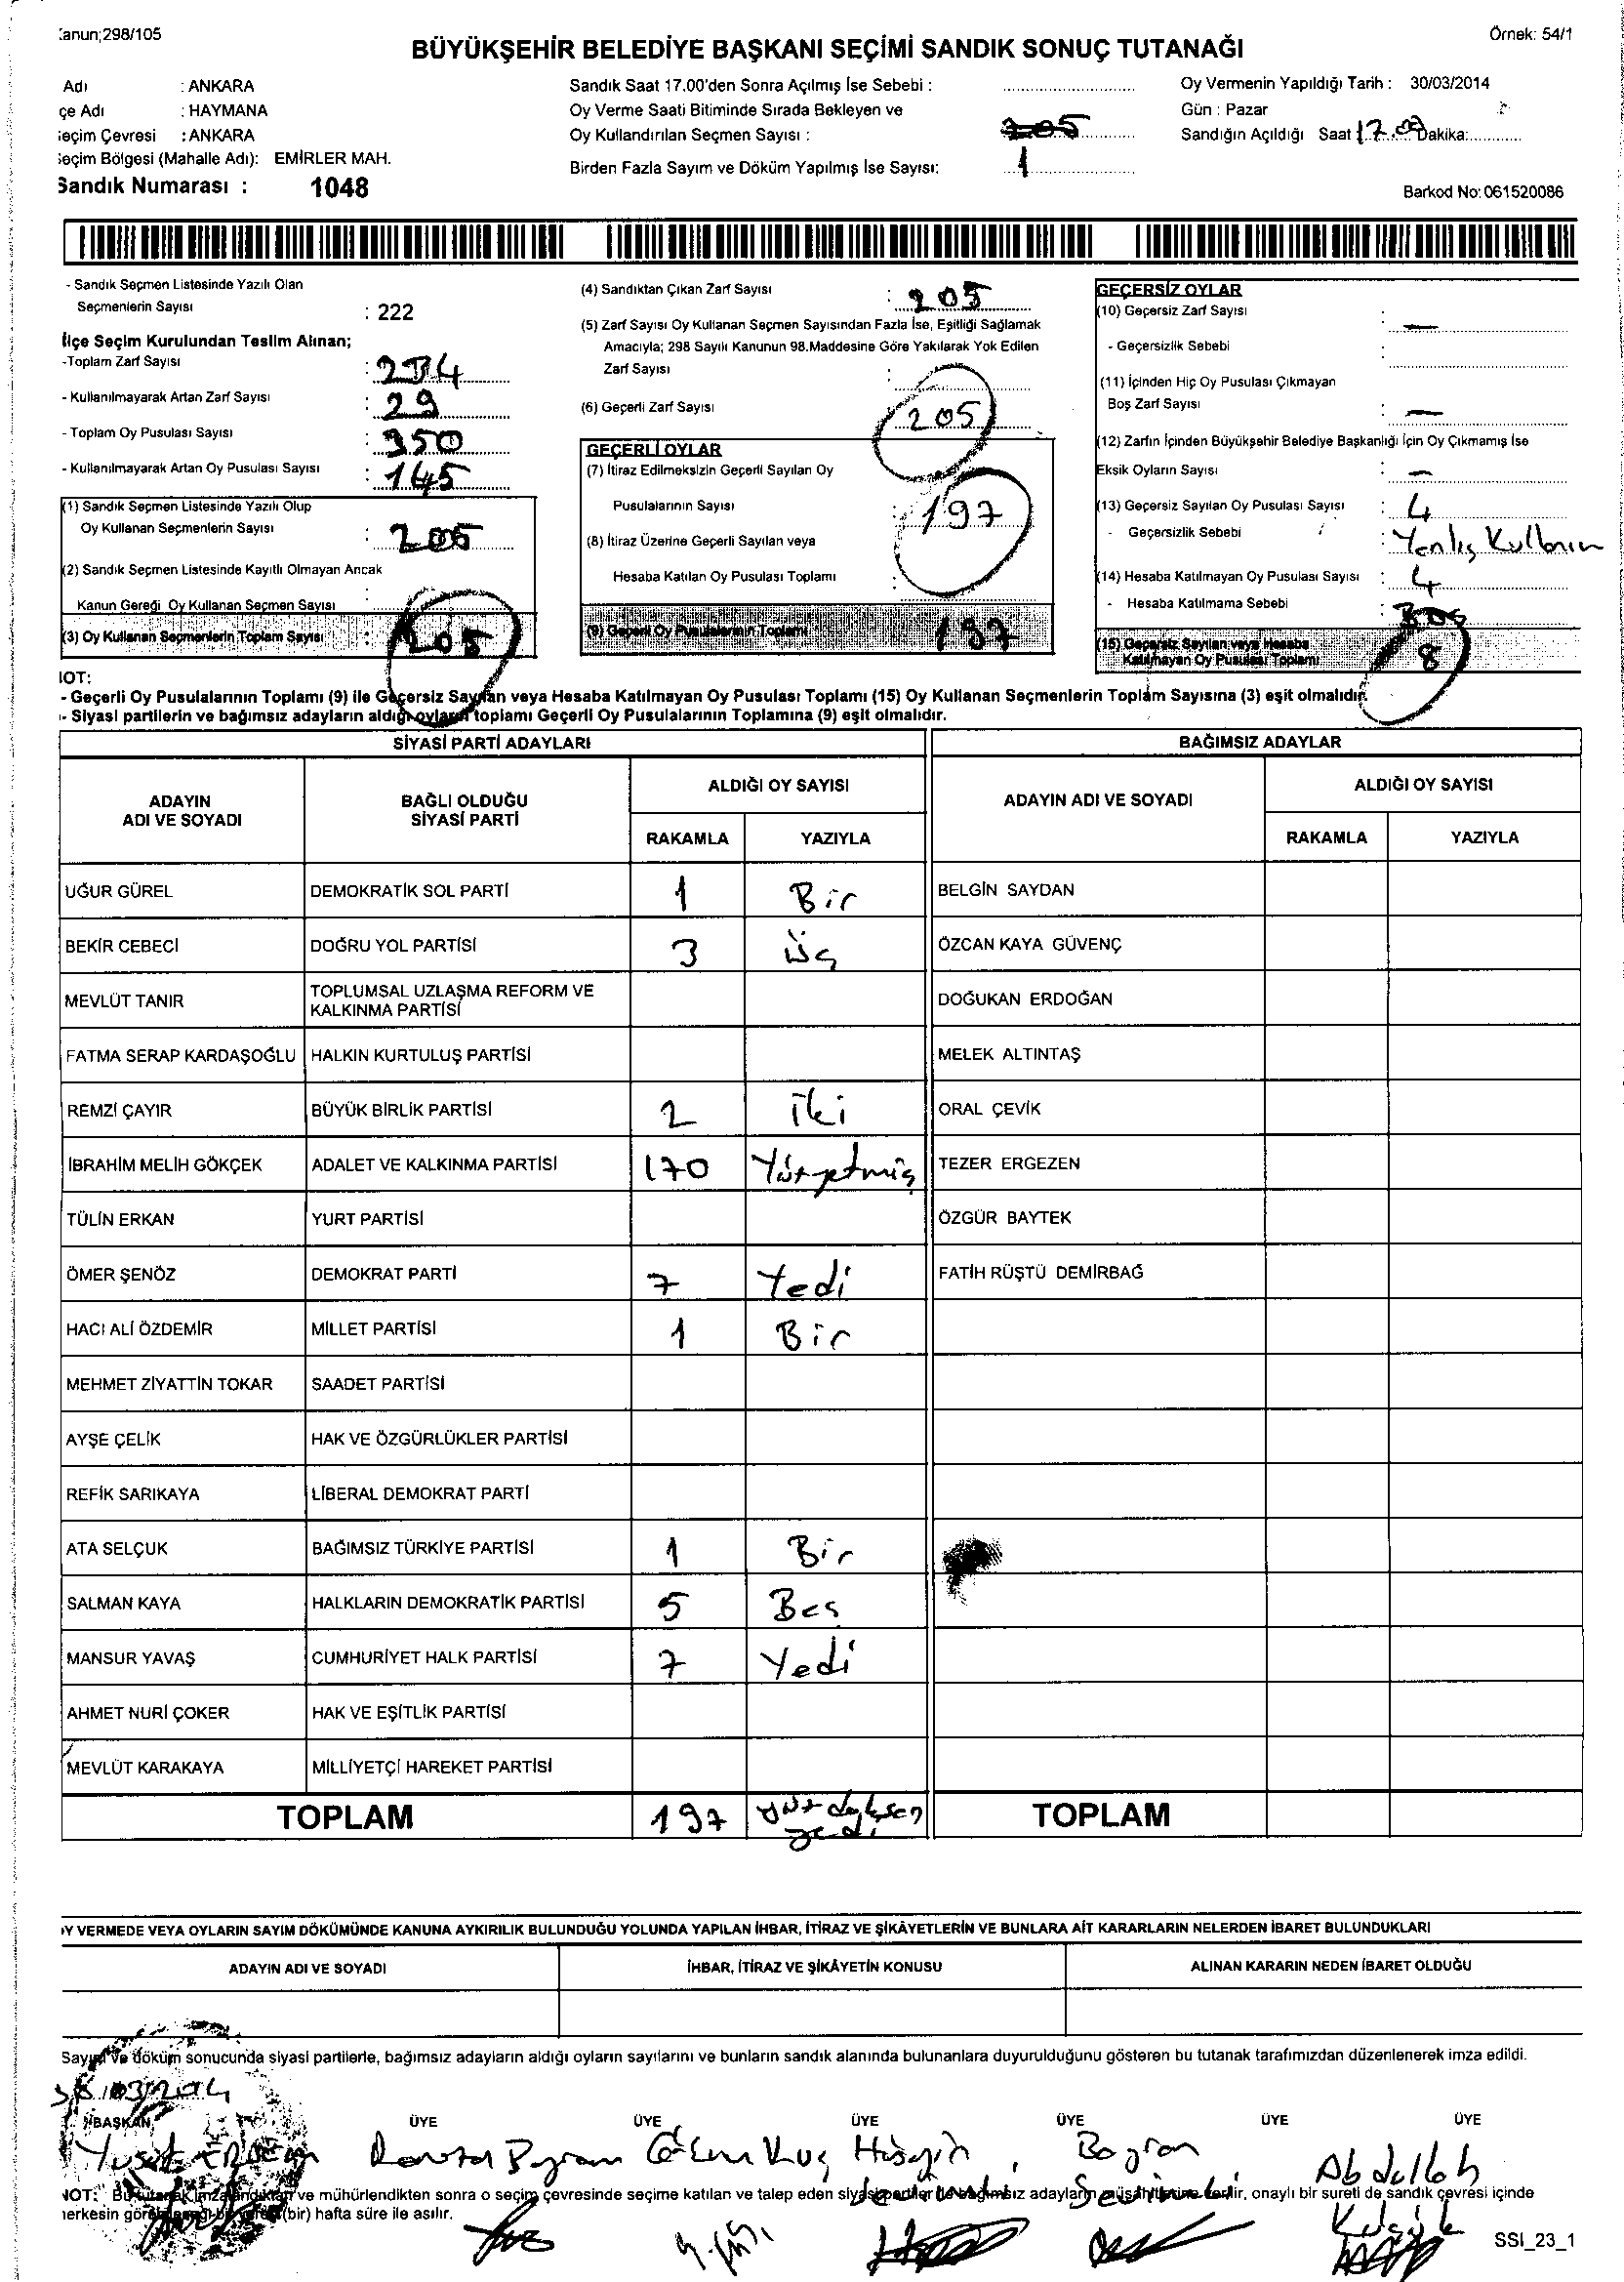 Kanun;298/105
Örnek: 54/1
BÜYÜKŞEHİR BELEDİYE BAŞKANI SEÇİMİ SANDIK SONUÇ TUTANAĞI
Adı : ANKARA
çe Adı : HAYMANA
eçim Çevresi : ANKARA
Seçim Bölgesi (Mahalle Adı): EMİRLER MAH.
Sandık Numarası : 1048
Sandık Saat 17.00'den Sonra Açılmış İse Sebebi :
Oy Verme Saati Bitiminde Sırada Bekleyen ve
Oy Kullandırılan Seçmen Sayısı : 205
Birden Fazla Sayım ve Döküm Yapılmış İse Sayısı: 1
Oy Vermenin Yapıldığı Tarih : 30/03/2014
Gün : Pazar
Sandığın Açıldığı Saat 17.00 Dakika:
Barkod No: 061520086
- Sandık Seçmen Listesinde Yazılı Olan
Seçmenlerin Sayısı : 222
İlçe Seçim Kurulundan Teslim Alınan;
-Toplam Zarf Sayısı : 234
- Kullanılmayarak Artan Zarf Sayısı : 29
- Toplam Oy Pusulası Sayısı : 350
- Kullanılmayarak Artan Oy Pusulası Sayısı : 145
(1) Sandık Seçmen Listesinde Yazılı Olup
Oy Kullanan Seçmenlerin Sayısı : 205
(2) Sandık Seçmen Listesinde Kayıtlı Olmayan Ancak
Kanun Gereği Oy Kullanan Seçmen Sayısı :
(3) Oy Kullanan Seçmenlerin Toplam Sayısı : 205
(4) Sandıktan Çıkan Zarf Sayısı : 205
(5) Zarf Sayısı Oy Kullanan Seçmen Sayısından Fazla İse, Eşitliği Sağlamak
Amacıyla; 298 Sayılı Kanunun 98.Maddesine Göre Yakılarak Yok Edilen
Zarf Sayısı :
(6) Geçerli Zarf Sayısı : 205
GEÇERLİ OYLAR
(7) İtiraz Edilmeksizin Geçerli Sayılan Oy
Pusulalarının Sayısı : 197
(8) İtiraz Üzerine Geçerli Sayılan veya
Hesaba Katılan Oy Pusulası Toplamı :
(9) Geçerli Oy Pusulalarının Toplamı 197
GEÇERSİZ OYLAR
(10) Geçersiz Zarf Sayısı : —
- Geçersizlik Sebebi :
(11) İçinden Hiç Oy Pusulası Çıkmayan
Boş Zarf Sayısı : —
(12) Zarfın İçinden Büyükşehir Belediye Başkanlığı İçin Oy Çıkmamış İse
Eksik Oyların Sayısı : —
(13) Geçersiz Sayılan Oy Pusulası Sayısı : 4
- Geçersizlik Sebebi : Yanlış Kullanım
(14) Hesaba Katılmayan Oy Pusulası Sayısı : 4
- Hesaba Katılmama Sebebi : Boş
(15) Geçersiz Sayılan veya Hesaba
Katılmayan Oy Pusulası Toplamı 8
NOT:
- Geçerli Oy Pusulalarının Toplamı (9) ile Geçersiz Sayılan veya Hesaba Katılmayan Oy Pusulası Toplamı (15) Oy Kullanan Seçmenlerin Toplam Sayısına (3) eşit olmalıdır.
- Siyasi partilerin ve bağımsız adayların aldığı oyların toplamı Geçerli Oy Pusulalarının Toplamına (9) eşit olmalıdır.
SİYASİ PARTİ ADAYLARI BAĞIMSIZ ADAYLAR
ADAYIN ADI VE SOYADI BAĞLI OLDUĞU SİYASİ PARTİ ALDIĞI OY SAYISI ADAYIN ADI VE SOYADI ALDIĞI OY SAYISI
RAKAMLA YAZIYLA RAKAMLA YAZIYLA
UĞUR GÜREL DEMOKRATİK SOL PARTİ 1 Bir BELGİN SAYDAN
BEKİR CEBECİ DOĞRU YOL PARTİSİ 3 Üç ÖZCAN KAYA GÜVENÇ
MEVLÜT TANIR TOPLUMSAL UZLAŞMA REFORM VE KALKINMA PARTİSİ DOĞUKAN ERDOĞAN
FATMA SERAP KARDAŞOĞLU HALKIN KURTULUŞ PARTİSİ MELEK ALTINTAŞ
REMZİ ÇAYIR BÜYÜK BİRLİK PARTİSİ 2 İki ORAL ÇEVİK
İBRAHİM MELİH GÖKÇEK ADALET VE KALKINMA PARTİSİ 170 Yüzyetmiş TEZER ERGEZEN
TÜLİN ERKAN YURT PARTİSİ ÖZGÜR BAYTEK
ÖMER ŞENÖZ DEMOKRAT PARTİ 7 Yedi FATİH RÜŞTÜ DEMİRBAĞ
HACI ALİ ÖZDEMİR MİLLET PARTİSİ 1 Bir
MEHMET ZİYATTİN TOKAR SAADET PARTİSİ
AYŞE ÇELİK HAK VE ÖZGÜRLÜKLER PARTİSİ
REFİK SARIKAYA LİBERAL DEMOKRAT PARTİ
ATA SELÇUK BAĞIMSIZ TÜRKİYE PARTİSİ 1 Bir
SALMAN KAYA HALKLARIN DEMOKRATİK PARTİSİ 5 Beş
MANSUR YAVAŞ CUMHURİYET HALK PARTİSİ 7 Yedi
AHMET NURİ ÇOKER HAK VE EŞİTLİK PARTİSİ
MEVLÜT KARAKAYA MİLLİYETÇİ HAREKET PARTİSİ
TOPLAM 197 yüz doksan yedi TOPLAM
OY VERMEDE VEYA OYLARIN SAYIM DÖKÜMÜNDE KANUNA AYKIRILIK BULUNDUĞU YOLUNDA YAPILAN İHBAR, İTİRAZ VE ŞİKÂYETLERİN VE BUNLARA AİT KARARLARIN NELERDEN İBARET BULUNDUKLARI
ADAYIN ADI VE SOYADI İHBAR, İTİRAZ VE ŞİKÂYETİN KONUSU ALINAN KARARIN NEDEN İBARET OLDUĞU
Sayım ve döküm sonucunda siyasi partilerle, bağımsız adayların aldığı oyların sayılarını ve bunların sandık alanında bulunanlara duyurulduğunu gösteren bu tutanak tarafımızdan düzenlenerek imza edildi.
BAŞKAN ÜYE ÜYE ÜYE ÜYE ÜYE ÜYE
Hüseyin Bayram Abdullah
NOT: Bu tutanak imzalandıktan ve mühürlendikten sonra o seçim çevresinde seçime katılan ve talep eden siyasi partiler ile bağımsız adayların müşahitlerine verilir, onaylı bir sureti de sandık çevresi içinde
herkesin görebileceği bir yere (bir) hafta süre ile asılır.
SSI_23_1